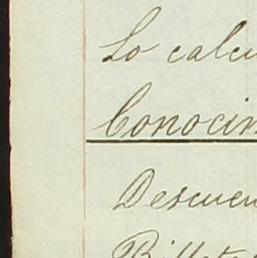 Lo calcu
Conocim
Descuen
Billete